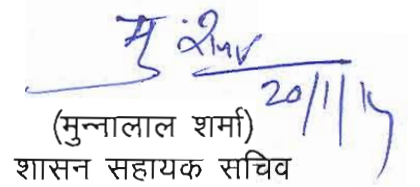 20/1/14
(मुन्नालाल शर्मा)
शासन सहायक सचिव